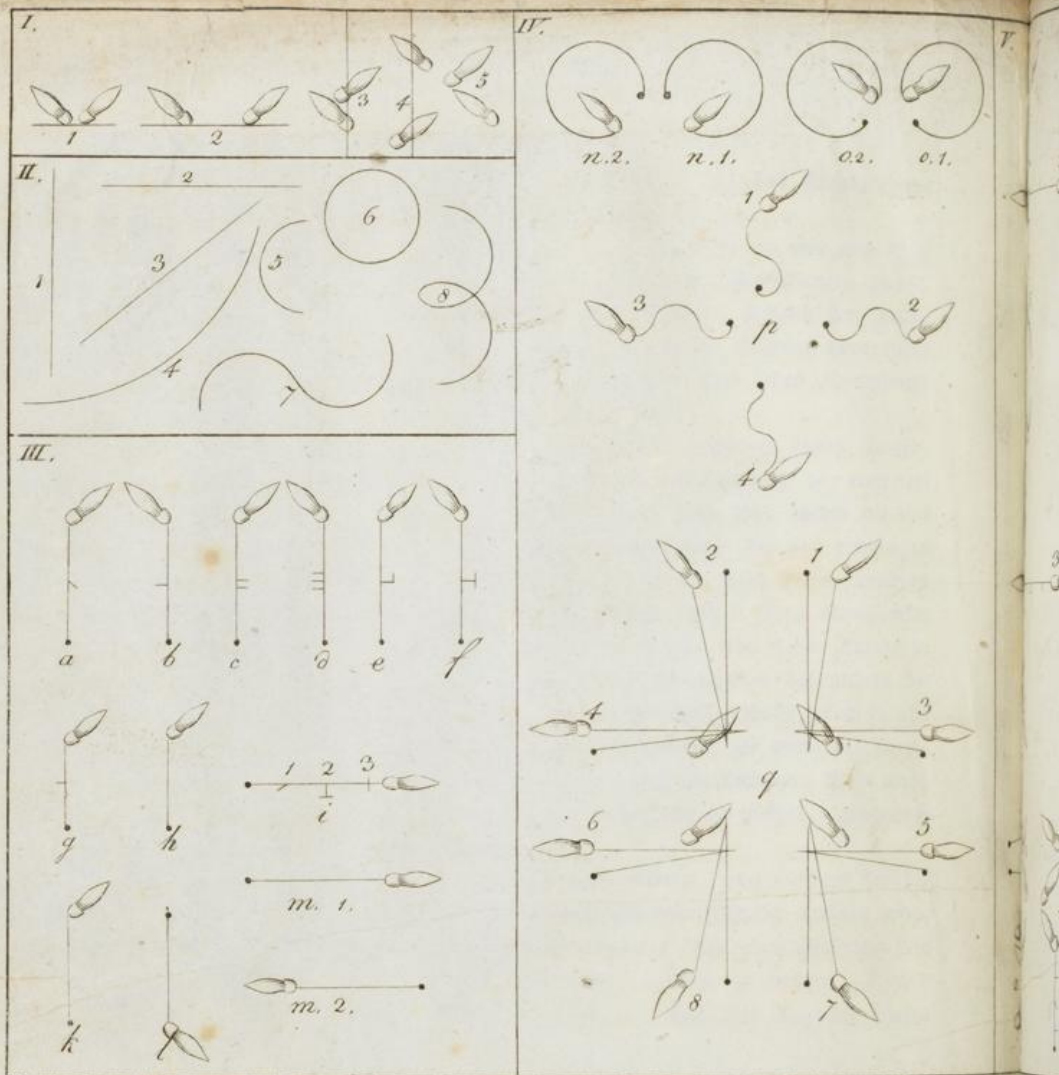 I.
1 2 3 4 5
II.
1 2 3 4 5 6 7 8
III.
a b c d e f
g h
1 2 3
i
m. 1.
k l
m. 2.
IV.
n.2. n.1. o.2. o.1.
1
3 p 2
4
2 1
4 3
q
6 5
8 7
V.
3